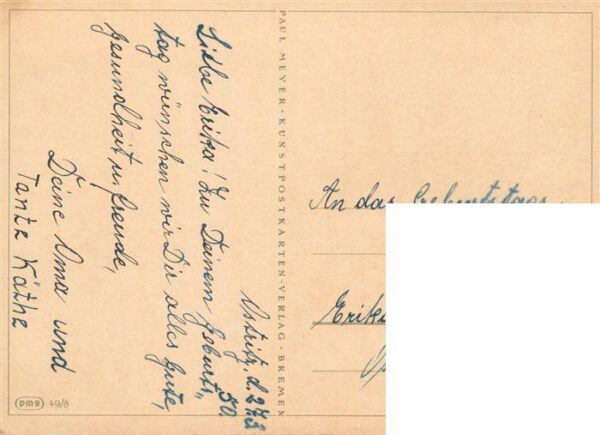 Ostritz, d. 27.3.
50.
Liebe Erika! Zu Deinem Geburts„
tag wünschen wir Dir alles Gute,
Gesundheit u. Freude,
Deine Oma und
Tante Käthe
PAUL MEYER · KUNSTPOSTKARTEN-VERLAG · BREMEN
An das Geburtstags
Erika
PMB 49/8